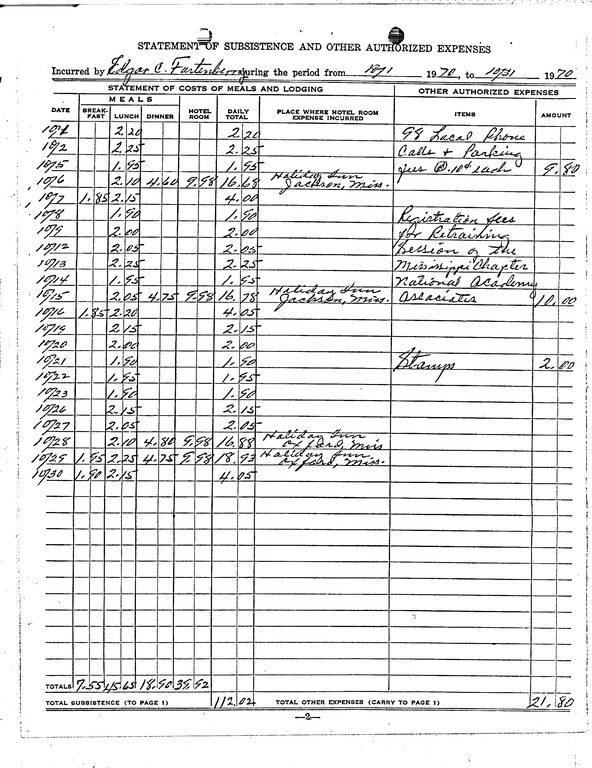 STATEMENT OF SUBSISTENCE AND OTHER AUTHORIZED EXPENSES
Incurred by Edgar C. Fortenberry during the period from 10/1 1970, to 10/31 1970
STATEMENT OF COSTS OF MEALS AND LODGING OTHER AUTHORIZED EXPENSES
MEALS
DATE BREAK-FAST LUNCH DINNER HOTEL ROOM DAILY TOTAL PLACE WHERE HOTEL ROOM EXPENSE INCURRED ITEMS AMOUNT
10/1 2.20 2.20 98 Local Phone
10/2 2.25 2.25 Calls & Parking
10/5 1.95 1.95 fees @ .10¢ each 9.80
10/6 2.10 4.60 9.98 16.68 Holiday Inn Jackson, Miss.
10/7 1.85 2.15 4.00
10/8 1.90 1.90 Registration fees
10/9 2.00 2.00 for Retraining
10/12 2.05 2.05 Session of the
10/13 2.25 2.25 Mississippi Chapter
10/14 1.95 1.95 National Academy
10/15 2.05 4.75 9.98 16.78 Holiday Inn Jackson, Miss. Associates 10.00
10/16 1.85 2.20 4.05
10/19 2.15 2.15
10/20 2.00 2.00
10/21 1.90 1.90 Stamps 2.00
10/22 1.95 1.95
10/23 1.90 1.90
10/26 2.15 2.15
10/27 2.05 2.05
10/28 2.10 4.80 9.98 16.88 Holiday Inn Oxford, Miss
10/29 1.95 2.25 4.75 9.98 18.93 Holiday Inn Oxford, Miss.
10/30 1.90 2.15 4.05
TOTALS 7.55 45.65 18.90 39.92
TOTAL SUBSISTENCE (TO PAGE 1) 112.02 TOTAL OTHER EXPENSES (CARRY TO PAGE 1) 21.80
—2—